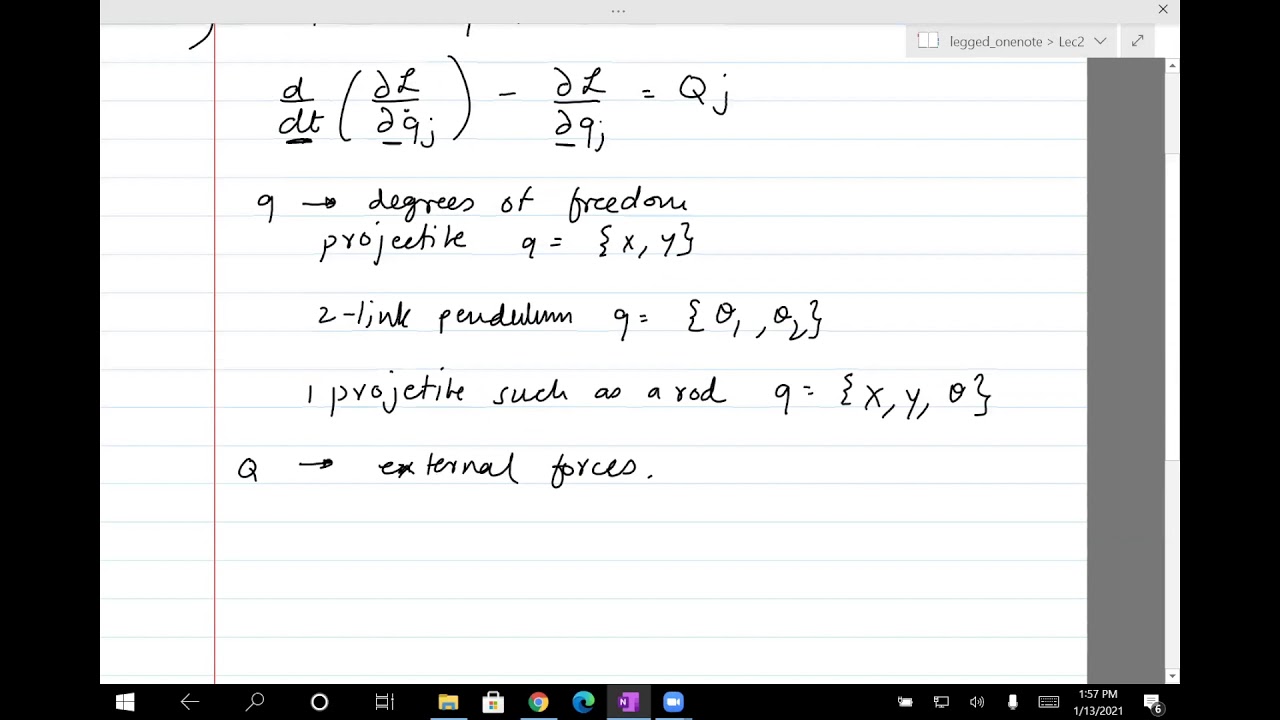 legged_onenote > Lec2
d/dt ( ∂L/∂q̇j ) - ∂L/∂qj = Qj
q → degrees of freedom
projectile q = {x, y}
2-link pendulum q = {θ1, θ2}
1 projetile such as a rod q = {x, y, θ}
Q → external forces.
1:57 PM
1/13/2021
6